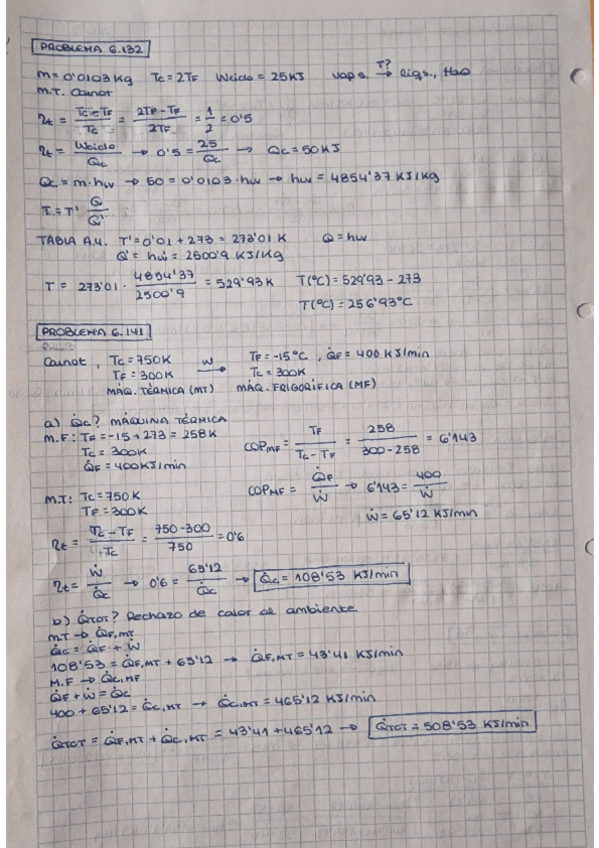 PROBLEMA 6.132
m = 0'0103 Kg   Tc = 2TF   Wciclo = 25 KJ   vap s. →(T?) liq s., H2O
M.T. Carnot
ηt = (Tc - TF)/Tc = (2TF - TF)/2TF = 1/2 = 0'5
ηt = Wciclo/Qc → 0'5 = 25/Qc → Qc = 50 KJ
Qc = m·hlv → 50 = 0'0103·hlv → hlv = 4854'37 KJ/Kg
T = T' Q/Q'
TABLA A.4. T' = 0'01 + 273 = 273'01 K   Q = hlv
Q' = hlv' = 2500'9 KJ/Kg
T = 273'01 · 4854'37/2500'9 = 529'93 K   T(°C) = 529'93 - 273
T(°C) = 256'93°C
PROBLEMA 6.141
Carnot, Tc = 750K   W →   TF = -15°C, Q̇F = 400 KJ/min
TF = 300K   Tc = 300K
MÁQ. TÉRMICA (MT)   MÁQ. FRIGORÍFICA (MF)
a) Q̇c? MÁQUINA TÉRMICA
M.F: TF = -15 + 273 = 258K   COPMF = TF/(Tc - TF) = 258/(300 - 258) = 6'143
Tc = 300K
Q̇F = 400 KJ/min
M.T: Tc = 750K   COPMF = Q̇F/Ẇ → 6'143 = 400/Ẇ
TF = 300K   Ẇ = 65'12 KJ/min
ηt = (Tc - TF)/Tc = (750 - 300)/750 = 0'6
ηt = Ẇ/Q̇c → 0'6 = 65'12/Q̇c → Q̇c = 108'53 KJ/min
b) Q̇TOT? Rechazo de calor al ambiente
M.T → Q̇F,MT
Q̇c = Q̇F + Ẇ
108'53 = Q̇F,MT + 65'12 → Q̇F,MT = 43'41 KJ/min
M.F → Q̇c,MF
Q̇F + Ẇ = Q̇c
400 + 65'12 = Q̇c,MT → Q̇c,MT = 465'12 KJ/min
Q̇TOT = Q̇F,MT + Q̇c,MT = 43'41 + 465'12 → Q̇TOT = 508'53 KJ/min